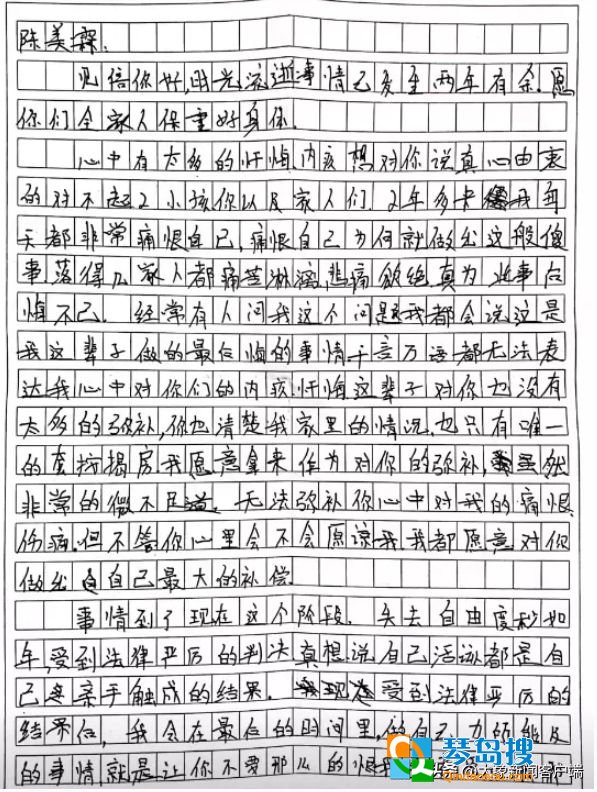 陈美霖:
见信你好,时光流逝事情已发生两年有余.愿
你们全家人保重好身体.
心中有太多的忏悔内疚想对你说真心由衷
的对不起2小孩你以及家人们.2年多来我每
天都非常痛恨自己,痛恨自己为何就做出这般傻
事.落得几家人都痛苦淋漓,悲痛欲绝.真为此事后
悔不己. 经常有人问我这个问题我都会说这是
我这辈子做的最后悔的事情千言万语都无法表
达我心中对你们的内疚忏悔这辈子对你也没有
太多的弥补,你也清楚我家里的情况.也只有唯一
的套按揭房我愿意拿来作为对你的弥补,虽然
非常的微不足道. 无法弥补你心中对我的痛恨,
伤痛.但不管你心里会不会原谅我.我都愿意对你
做出自己最大的补偿.
事情到了现在这个阶段. 失去自由度秒如
年,受到法律严厉的判决真想说自己活该都是自
己亲手触成的结果. 我现在受到法律严厉的
结果后, 我会在最后的时间里,做自己力所能及
的事情,就是让你不要那么的恨我
琴岛搜
大象新闻客户端